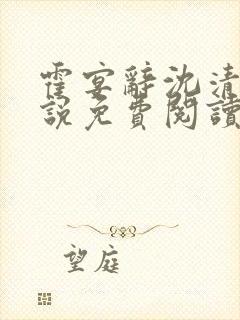 霍宴辭沈清
說免費閱讀
望庭